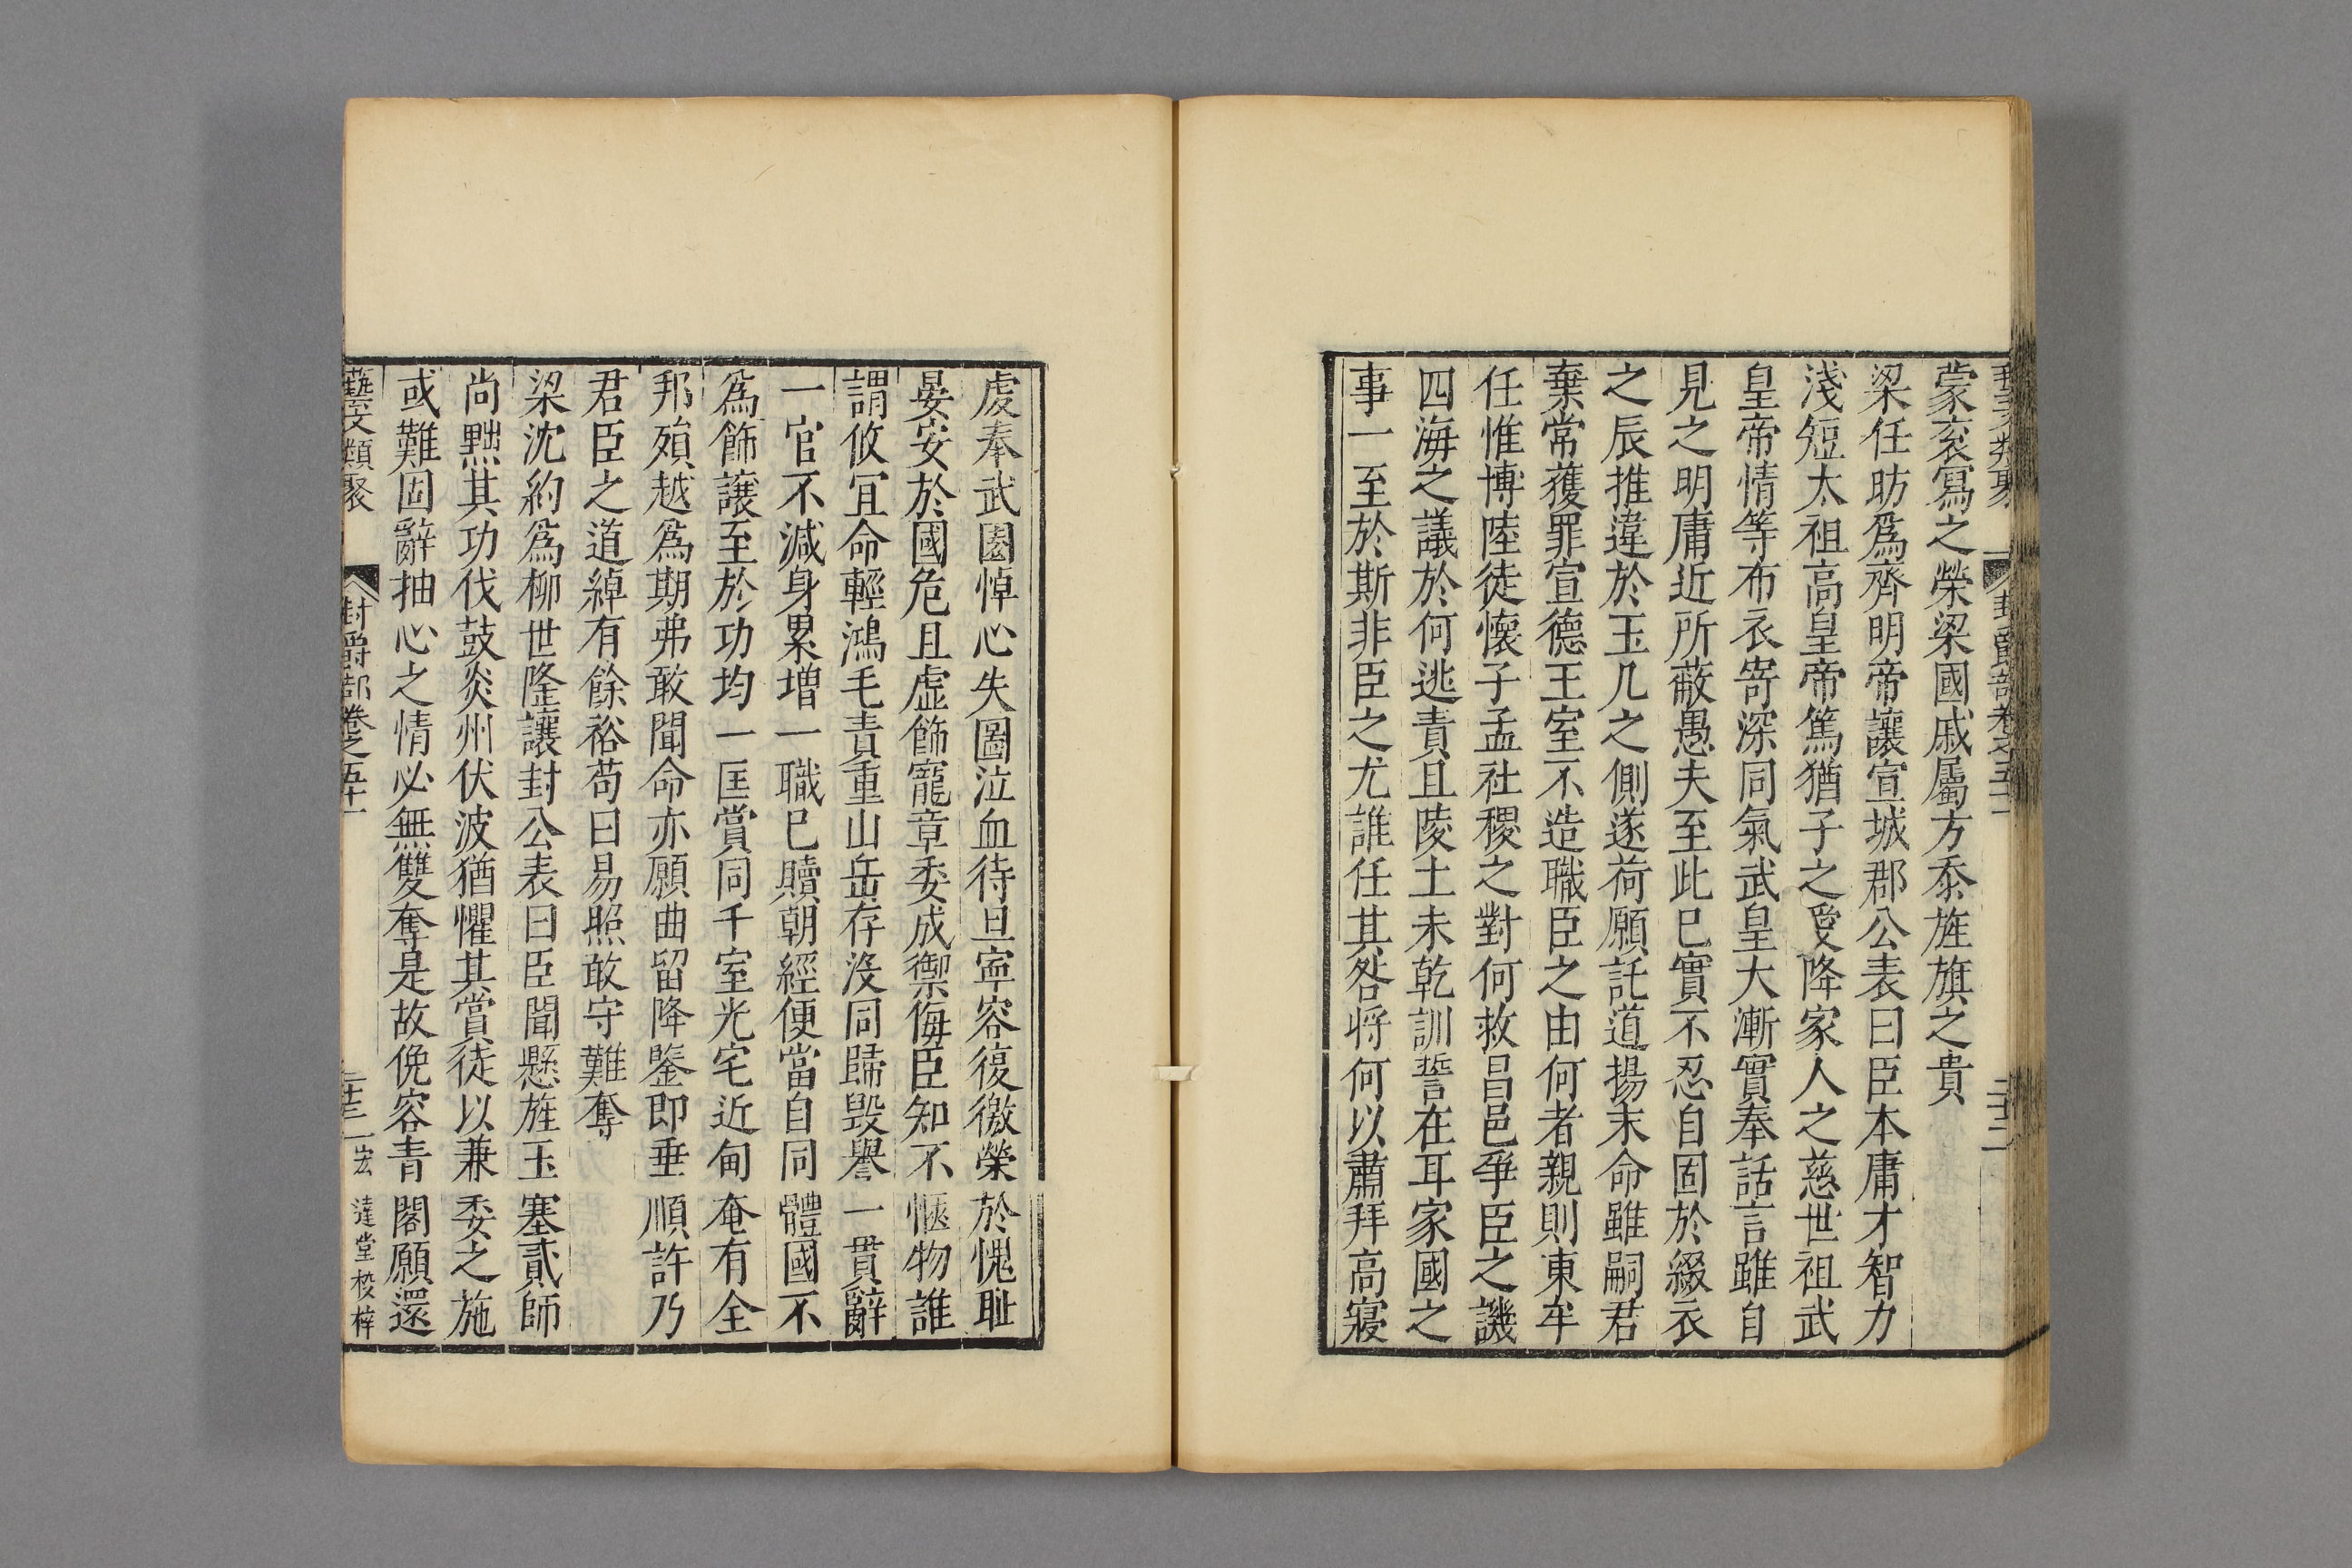 蒙衮寫之榮梁國戚屬方忝旌旗之貴
梁任昉爲齊明帝讓宣城郡公表曰臣本庸才智力
淺短太祖高皇帝篤猶子之愛降家人之慈世祖武
皇帝情等布衣寄深同氣武皇大漸實奉話言雖自
見之明庸近所蔽愚夫至此已實不忍自固於綴衣
之辰推違於玉几之側遂荷願託道揚末命雖嗣君
棄常獲罪宣德王室不造職臣之由何者親則東牟
任惟博陸徒懷子孟社稷之對何救昌邑爭臣之譏
四海之議於何逃責且陵土未乾訓誓在耳家國之
事一至於斯非臣之尤誰任其咎將何以肅拜高寢
虔奉武園悼心失圖泣血待旦寧容復徼榮於愧耻
晏安於國危且虛飾寵章委成禦侮臣知不愜物誰
謂攸冝命輕鴻毛責重山岳存沒同歸毀譽一貫辭
一官不減身累增一職已贖朝經便當自同體國不
爲飾讓至於功均一匡賞同千室光宅近甸奄有全
邦殞越爲期弗敢聞命亦願曲留降鑒即垂順許乃
君臣之道綽有餘裕苟曰易照敢守難奪
梁沈約爲柳世隆讓封公表曰臣聞懸旌玉塞貳師
尚黜其功伐鼓炎州伏波猶懼其賞徒以兼委之施
或難固辭抽心之情必無雙奪是故俛容青閣願還
藝文類聚 封爵部卷之五十一 二十三 宏達堂校梓